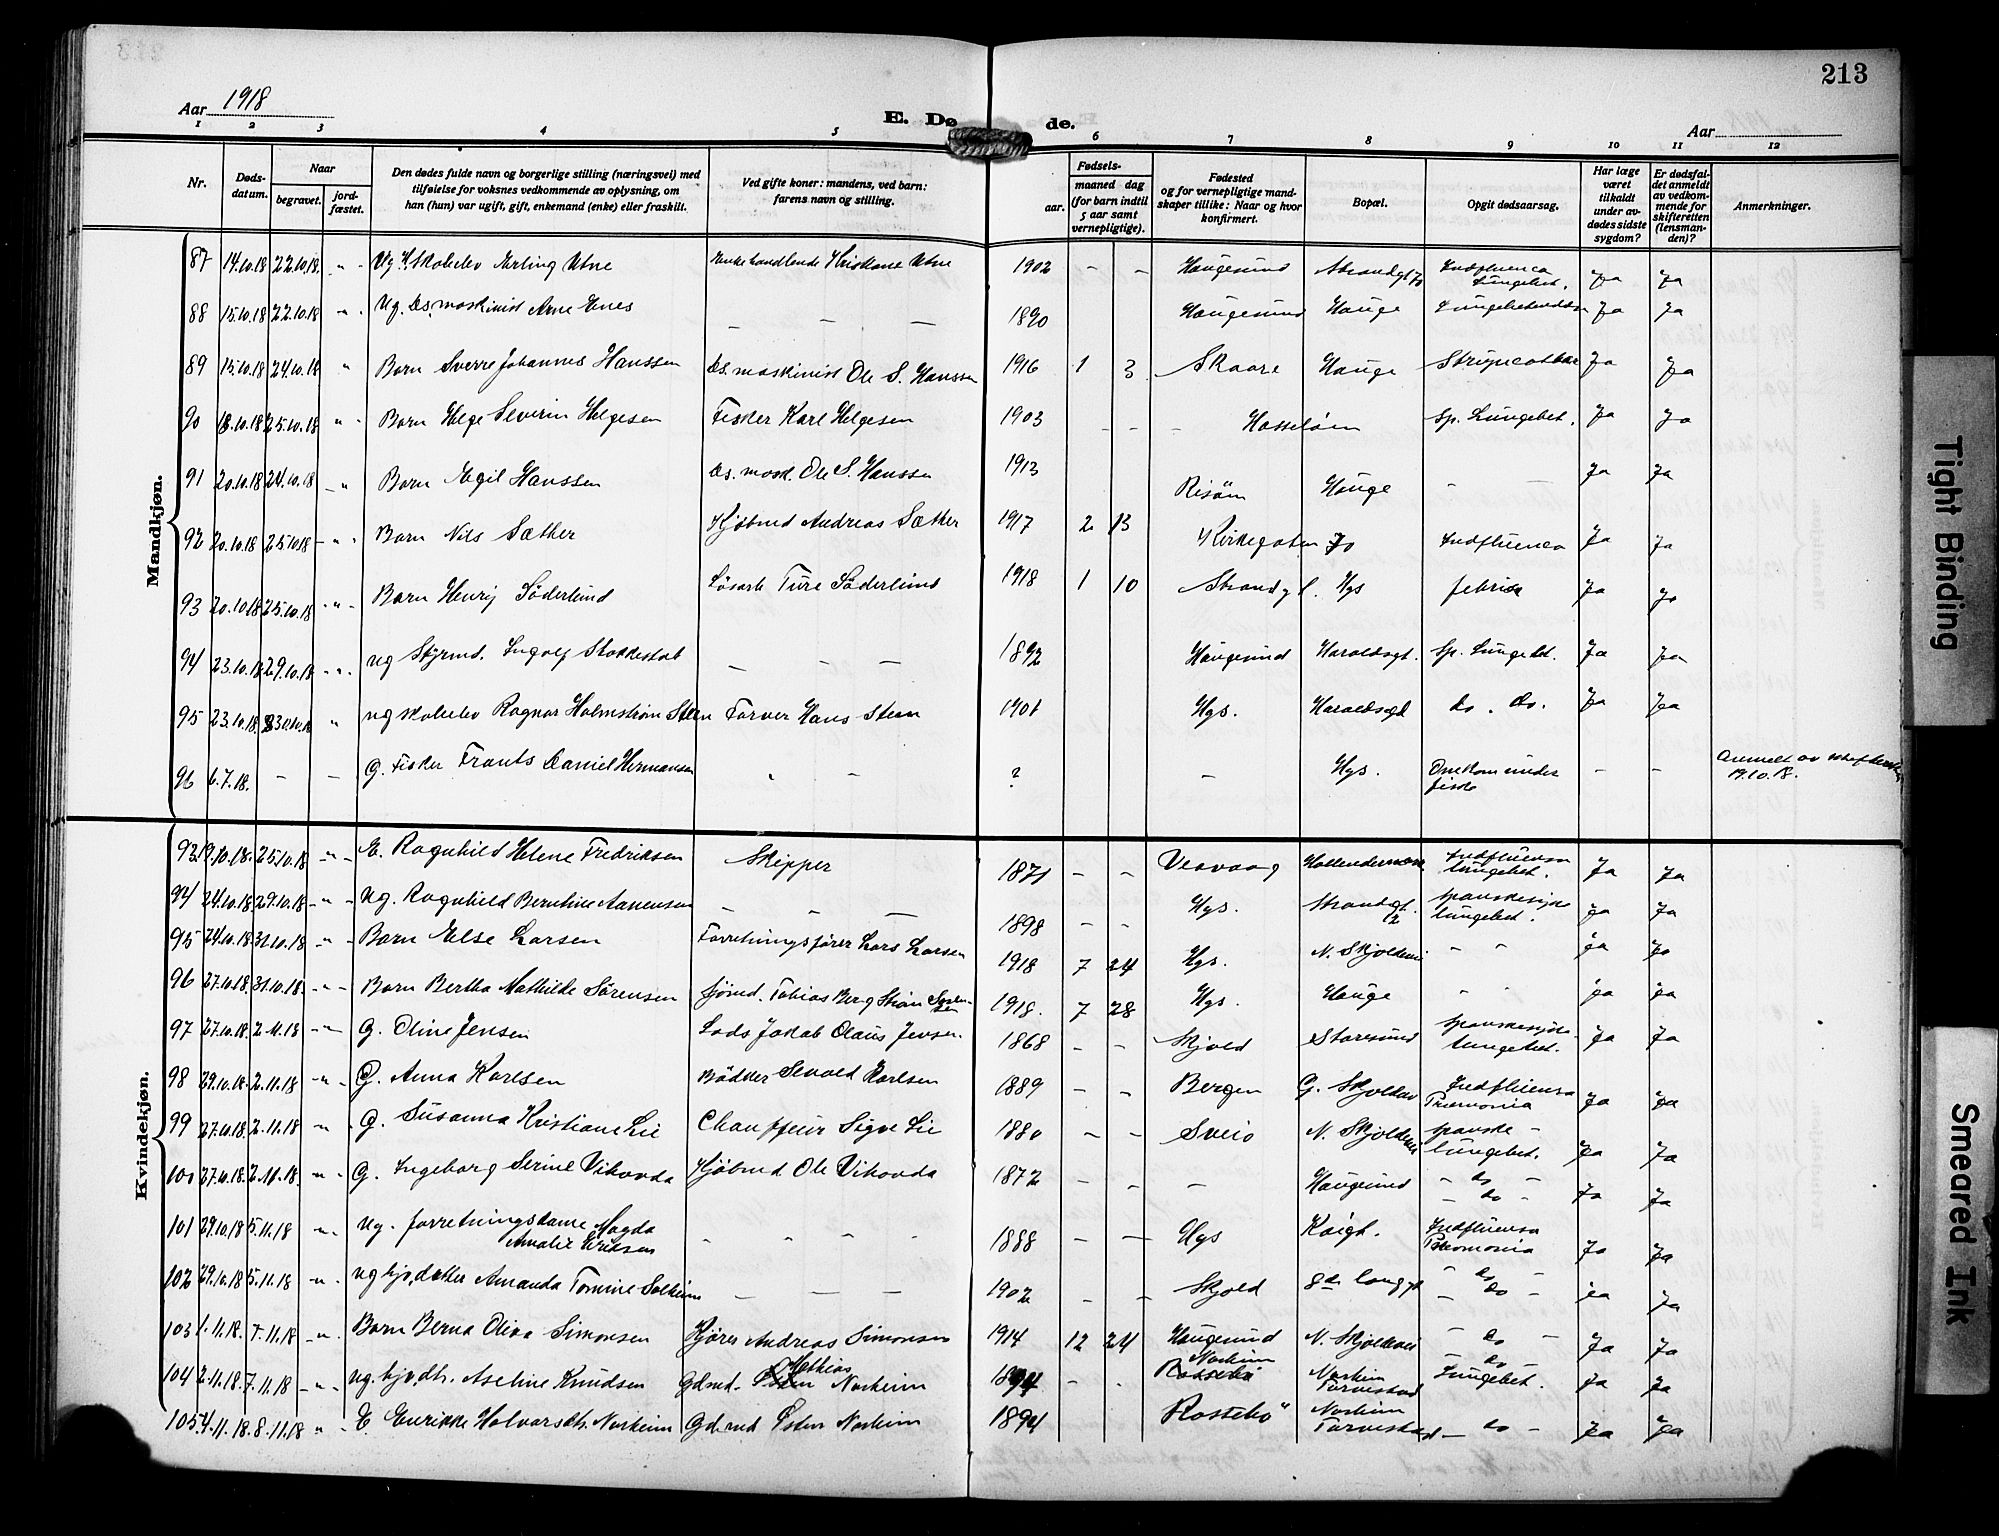 213
Aar 1918
E. Dø de.
Aar
1 2 3 4 5 6 7 8 9 10 11 12
Nr.
Døds-
datum.
Naar
begravet.
jord-
fæstet.
Den dødes fulde navn og borgerlige stilling (næringsvei) med
tilføielse for voksnes vedkommende av oplysning, om
han (hun) var ugift, gift, enkemand (enke) eller fraskilt.
Ved gifte koner: mandens, ved barn:
farens navn og stilling.
Fødsels-
aar.
maaned dag
(for barn indtil
5 aar samt
vernepligtige).
Fødested
og for vernepligtige mand-
skaper tillike: Naar og hvor
konfirmert.
Bopæl.
Opgit dødsaarsag.
Har læge
været
tilkaldt
under av-
dødes sidste
sygdom?
Er dødsfal-
det anmeldt
av vedkom-
mende for
skifteretten
(lensman-
den)?
Anmerkninger.
Mandkjøn.
87 14.10.18 22.10.18 - " - Ug. Skoleelev Erling Utne Enke handlende Kristiane Utne 1902 - - Haugesund Strandgt Indfluenca Lungebet. Ja Ja
88 15.10.18 22.10.18 - " - Ug. Ds. maskinist Arne Enes - - - 1890 Haugesund Hauge Lungebetendelse Ja Ja
89 15.10.18 24.10.18 " Barn Sverre Johannes Hanssen Ds. maskinist Ole S. Hanssen 1916 1 3 Skaare Hauge Ja Ja
90 18.10.18 25.10.18 - " - Barn Helge Severin Helgesen Fisker Karl Helgesen 1903 - - - Hasseløen Sp. Lungebet. Ja Ja
91 20.10.18 24.10.18 - " Barn Egil Hanssen Ds. mask. Ole S. Hanssen 1913 Risøen Hauge - - Ja Ja
92 20.10.18 25.10.18 - " - Barn Nils Sæther Kjøbmd Andreas Sæther 1917 2 13 Kirkegaten Indfluenca Ja Ja
93 20.10.18 25.10.18 - " - Barn Henry Söderlund Løsarb Ture Söderlund 1918 1 10 Strandgt. Hgs febrisa Ja Ja
94 23.10.18 29.10.18 - " - ug Styrmd. Ingolf Stokkeland - - - 1892 Haugesund Haraldsgt. Sp. Lungebet. Ja Ja
95 23.10.18 30.10.18 " ug skoleelev Ragnar Holmstrøm Steen Farver Hans Steen 1901 Hgs. Haraldsgd do. do. Ja Ja
96 6.7.18. - - G. Fisker Frants Daniel Hermansen " - ? - Hgs. Omkom under fiske - - Anmelt av skifteretten 19.10.18.
Kvindekjøn.
93 19.10.18. 25.10.18 - " - E. Ragnhild Helene Fredriksen Skipper 1871 - - Veavaag Indfluensa lungebet. Ja Ja
94 24.10.18 29.10.18 - " - Ug. Ragnhild Bernhine Aanensen - - - 1898 - - Hgs. Strandgt. 2 spanskesyke lungebet. Ja Ja
95 24.10.18 31.10.18 - " - Barn Else Larsen Forretningsfører Lars Larsen 1918 7 24 Hgs. N. Skjoldavei - - Ja Ja
96 27.10.18. 31.10.18. - " - Barn Bertha Mathilde Sørensen Sjømd. Tobias Berg Strøm Sørensen 1918. 7 28 Hgs. Hauge - - Ja Ja
97 27.10.18. 2.11.18 - " - G. Oline Jensen Lods Jakob Olaus Jensen 1868 - - Skjold Storesund spanskesyke lungebet. Ja Ja
98 29.10.18. 2.11.18 - " - G. Anna Karlsen Bödker Sevald Karlsen 1889 - - Bergen G. Skjoldav Indfluensa Pneumonia Ja Ja
99 27.10.18. 2.11.18 - " - G. Susanna Kristiane Lie Chauffeur Sigve Lie 1880 - - Sveio N. Skjoldavei spanske - lungebet. Ja Ja
100 27.10.18. 2.11.18. - " - G. Ingeborg Serine Vikovda Kjøbmd Ole Vikovda 1872 - - - Haugesund - do - - do - Ja Ja
101 29.10.18 5.11.18 - " - Ug. forretningsdame Magda Amalie Eriksen - - - - 1888 - - Hgs Kaigt. Indfluensa Pneumonia Ja Ja
102 29.10.18 5.11.18 - " - Ug hjv. datter Amanda Tomine Solheim - - - 1902 - - Skjold - do - - do - Ja Ja
103 1.11.18. 7.11.18 - " - Barn Berna Oliva Simonsen Kjører Andreas Simonsen 1914 12 24 Haugesund N. Skjoldavei - do - Ja Ja
104 2.11.18. 7.11.18 - " - Ug. hjv. dtr. Aseline Knudsen Gdmd. Mathias Norheim 1894 - - Norheim Norheim Torvestad - do - Lungebet. Ja Ja
105 4.11.18. 8.11.18 " - E. Enrikke Halvorsdtr. Norheim Gdmd Østen Norheim 1894 Rossebø Norheim Torvestad - do - Ja Ja
Tight Binding
Smeared Ink